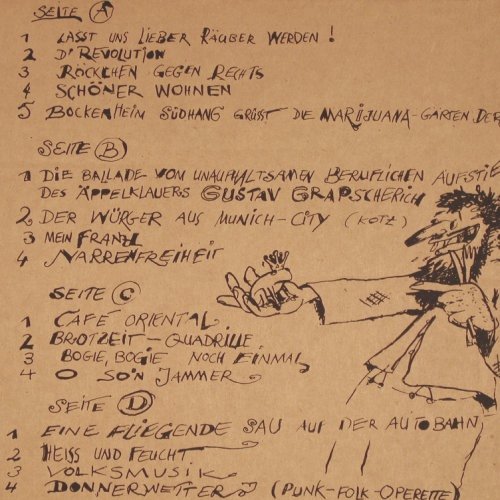 SEITE A
1 LASST UNS LIEBER RÄUBER WERDEN!
2 D'REVOLUTION
3 RÖCKCHEN GEGEN RECHTS
4 SCHÖNER WOHNEN
5 BOCKENHEIM SÜDHANG GRÜSST DIE MARIJUANA-GÄRTEN DER
SEITE B
1 DIE BALLADE VOM UNAUFHALTSAMEN BERUFLICHEN AUFSTIE
DES ÄPPELKLAUERS GUSTAV GRAPSCHERICH
2 DER WÜRGER AUS MUNICH-CITY (KOTZ)
3 MEIN FRANZL
4 NARRENFREIHEIT
SEITE C
1 CAFÉ ORIENTAL
2 BROTZEIT-QUADRILLE
3 BOGIE, BOGIE NOCH EINMAL
4 O SO'N JAMMER
SEITE D
1 EINE FLIEGENDE SAU AUF DER AUTOBAHN
2 HEISS UND FEUCHT
3 VOLKSMUSIK
4 DONNERWETTER (PUNK-FOLK-OPERETTE)